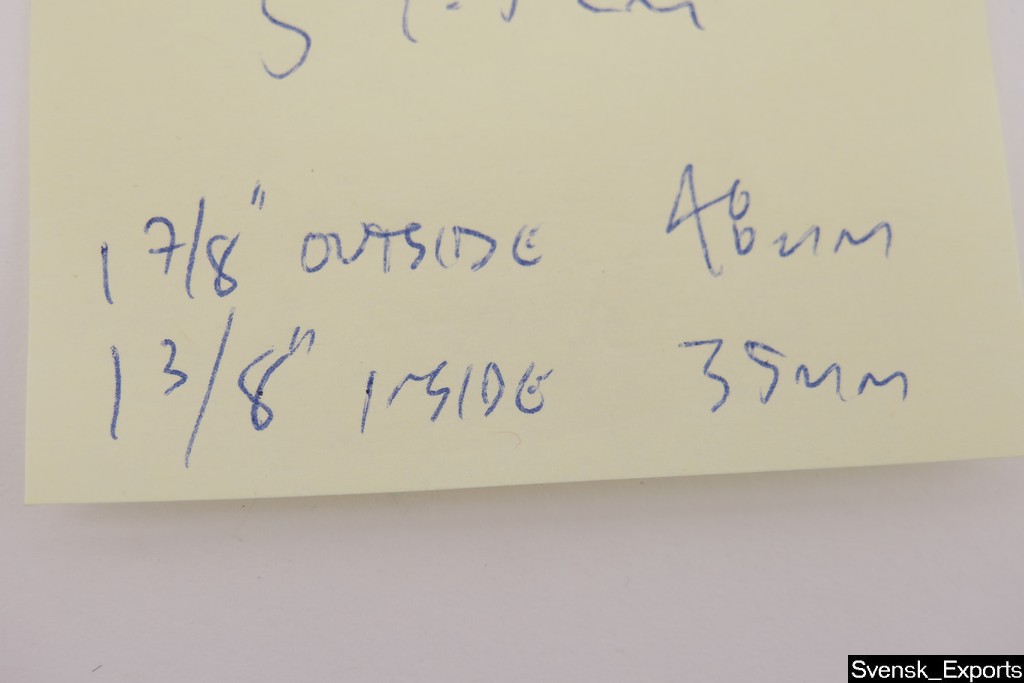 1 7/8" OUTSIDE 48mm
1 3/8" INSIDE 35mm
Svensk_Exports